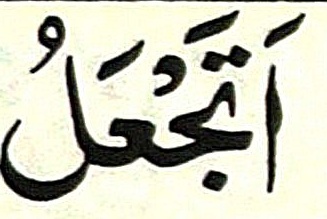 اَتَجْعَلُ